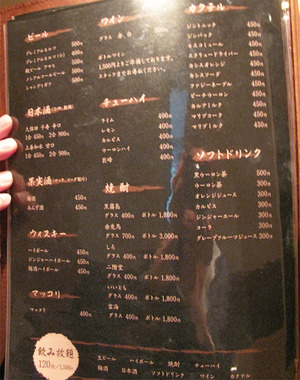 ビール
プレミアムモルツ 500円
ワイン
グラス 赤、白
ボトルワイン
1,500円よりご準備しております。
スタッフまでお尋ねください。
カクテル
ジントニック 450円
ジンバック 450円
モスコミュール 450円
スクリュードライバー 450円
カシスオレンジ 450円
カシスソーダ 450円
ファジーネーブル 450円
ピーチウーロン 450円
カルアミルク 450円
マリブコーク 450円
マリブミルク 450円
日本酒
1合 450円 2合 900円
1合 450円 2合 900円
チューハイ
ライム 400円
レモン 400円
カルピス 400円
ウーロンハイ 400円
巨峰 400円
ソフトドリンク
黒ウーロン茶 500円
ウーロン茶 300円
オレンジジュース 300円
カルピス 300円
ジンジャーエール 300円
コーラ 300円
グレープフルーツジュース 300円
果実酒
梅酒 450円
焼酎
黒霧島
グラス 400円 ボトル 1,800円
赤兎馬
グラス 700円 ボトル 3,000円
しろ
グラス 400円 ボトル 1,800円
二階堂
グラス 400円 ボトル 1,800円
いいとも
グラス 400円 ボトル 1,800円
雲海
グラス 400円 ボトル 1,800円
ウィスキー
ハイボール 450円
ジンジャーハイボール 450円
梅酒ハイボール 450円
マッコリ
マッコリ 400円
飲み放題
120分/1,500円
生ビール ハイボール 焼酎 チューハイ
梅酒 日本酒 ソフトドリンク ワイン カクテル